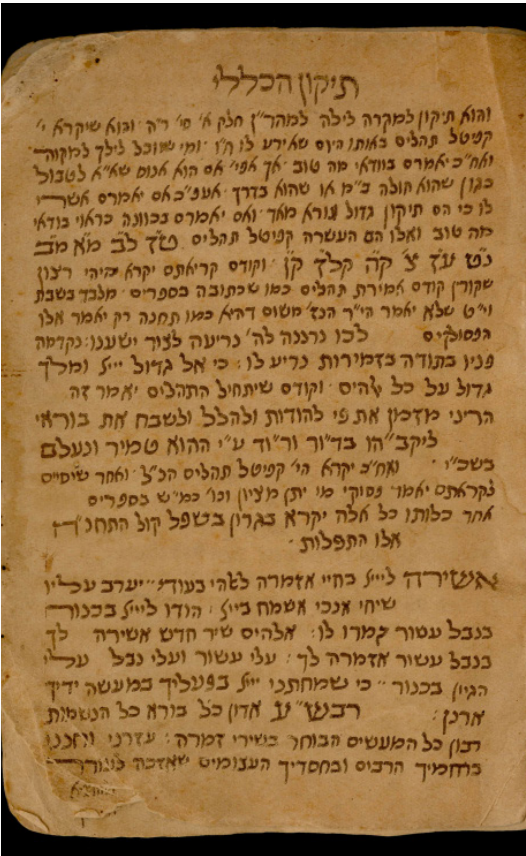 תיקון הכללי
והוא תיקון למקרה לילה למהר"ן חלק א' סי' ר"ה והוא שיקרא י'
קפיטל תהלים באותו היום שאירע לו ח"ו ומי שטובל לילך למקוה
ואח"כ יאמרם בוודאי מה טוב אך אפי' אם הוא אנוס שא"א לטבול
כגון שהוא חולה ב"מ או שהוא בדרך אעפ"כ אם יאמרם אשרי
לו כי הם תיקון גדול ונורא מאד ואם יאמרם בכוונה כראוי בודאי
מה טוב ואלו הם העשרה קפיטל תהלים ט"ז ל"ב מ"א מ"ב
נ"ט ע"ז צ' ק"ה קל"ז ק"ן וקודם קריאתם יקרא היהי רצון
שקורין קודם אמירת תהלים כמו שכתובה בספרים מלבד בשבת
וי"ט שלא יאמר הי"ר הנז' משום דהיא כמו תחנה רק יאמר אלו
הפסוקים לכו נרננה לה' נריעה לצור ישענו: נקדמה
פניו בתודה בזמירות נריע לו: כי אל גדול ייי ומלך
גדול על כל אלהים וקודם שיתחיל התהלים יאמר זה
הריני מזמן את פי להודות ולהלל ולשבח את בוראי
ליקב"הו בד"ור ור"וד ע"י ההוא טמיר ונעלם
בשכ"י ואח"כ יקרא הי' קפיטל תהלים הנ"ל ואחר שיסיים
לקראתם יאמר פסוקי מי יתן מציון וכו' כמ"ש בספרים
אחר כלותו כל אלה יקרא בגרון בשפל קול התחנ"ה
אלו התפלות
אשירה לייי בחיי אזמרה לאלהי בעודי יערב עליו
שיחי אנכי אשמח בייי: הודו לייי בכנור
בנבל עשור זמרו לו: אלהים שיר חדש אשירה לך
בנבל עשור אזמרה לך: עלי עשור ועלי נבל עלי
הגיון בכנור: כי שמחתני ייי בפעליך במעשה ידיך
ארנן: רבש"ע אדון כל בורא כל הנשמות
רבון כל המעשים הבוחר בשירי זמרה: עזרני וחנני
ברחמיך הרבים ובחסדיך העצומים שאזכה לעורר